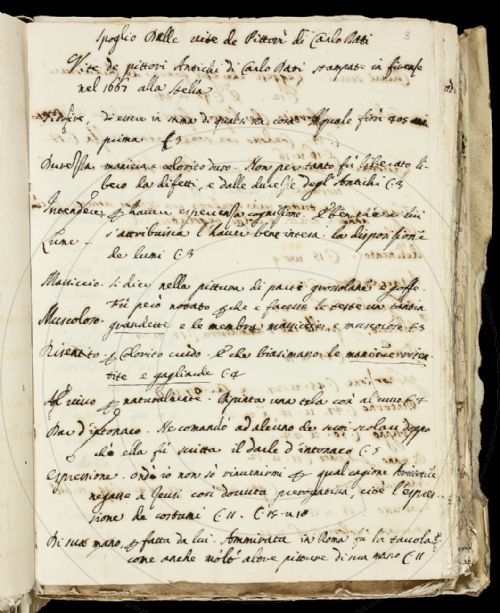 Spoglio Dalle vite de Pittori di Carlo Dati
8
Vite de pittori Antichi di Carlo Dati stampate in firenze
nel 1667 alla stella
di essere in stima di qualsisia cosa. Il quale fiorì
prima C 3
Durezza. maniera e colorito duro. Non per tanto fù liberato li-
bero da difetti, e dalle durezze degl'Antichi C 3
Intendere, p havere esperienza cognizione. E ben che a lui
Lume - s'attribuisca l'haver bene intesa la disposizione
de lumi C 3
Massiccio. si dice nella pittura di parte grossolane e goffe.
Fù però notato p che e facesse le teste un tantin
Muscoloso. grandette e le membra massiccie, e muscolose C 3
Risentito. p Colorito crudo. E che biasimano le maniere risen-
tite e gagliarde C 4
Al vivo p naturalmente. Dipinta una tela così al vivo C 4
Dar d'intonaco. He comandò ad alcuno de suoi scolari doppo
che ella fù scritta il darle d'intonaco C 5
Espressione. ond'io non sò rinvenirmi p qual cagione Aristotile
negasse a Zeusi così dovuta prerogativa, cioè l'espres-
sione de costumi C 11. C 15 u 18
Di sua mano. p fatta da lui. Ammirata in Roma fù la tavola
come anche molt' altre pitture di sua mano C 11